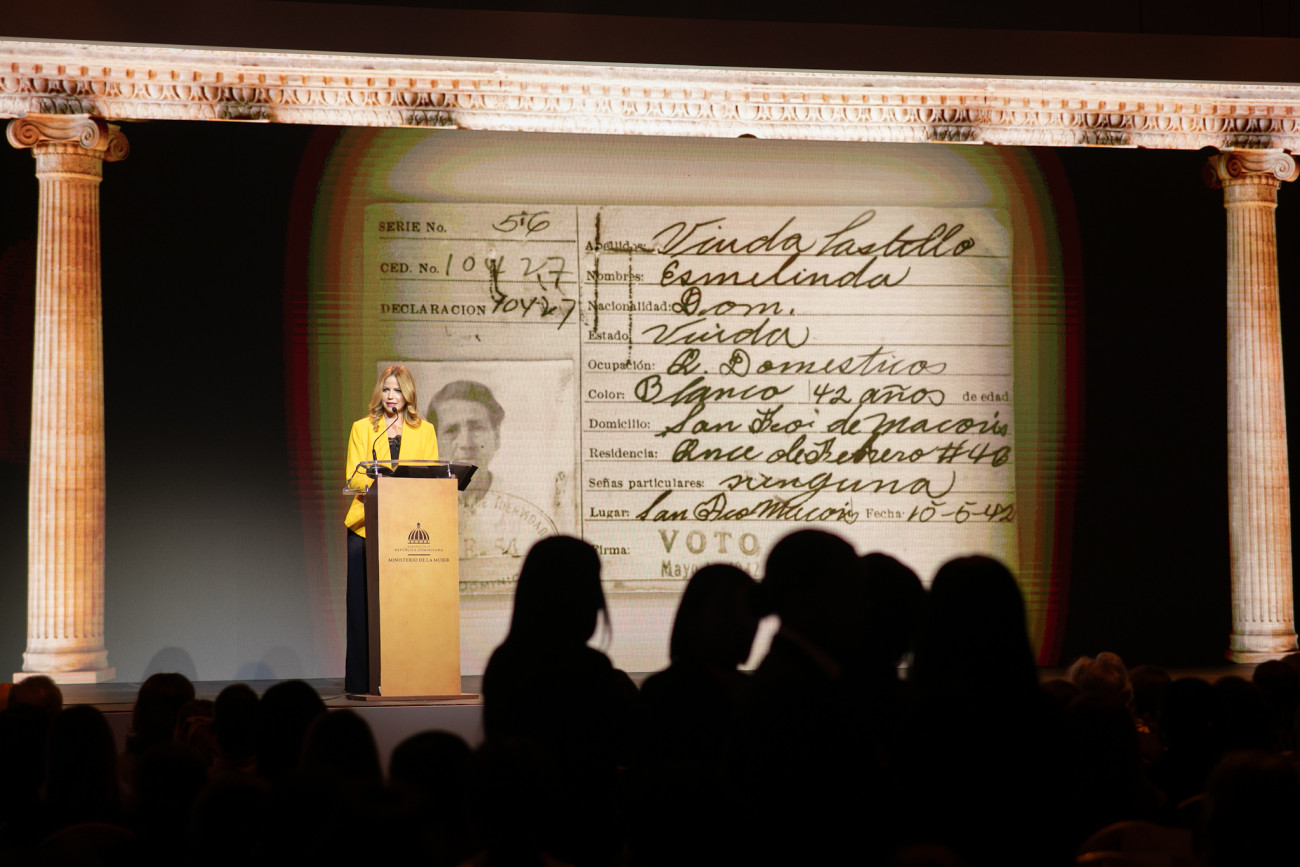 SERIE No. 56
CED. No. 10427
DECLARACION 10427
Apellidos: Viuda Castillo
Nombres: Esmelinda
Nacionalidad: Dom.
Estado Viuda
Ocupación: Q. Domesticos
Color: Blanco 42 años de edad
Domicilio: San Fco. de Macorís
Residencia: Once de Febrero #46
Señas particulares: ninguna
Lugar: San Fco Macorís Fecha: 10-5-42
Firma: VOTO
Mayo 1942
DE IDENTIDAD
DOMINIC
REPÚBLICA DOMINICANA
MINISTERIO DE LA MUJER